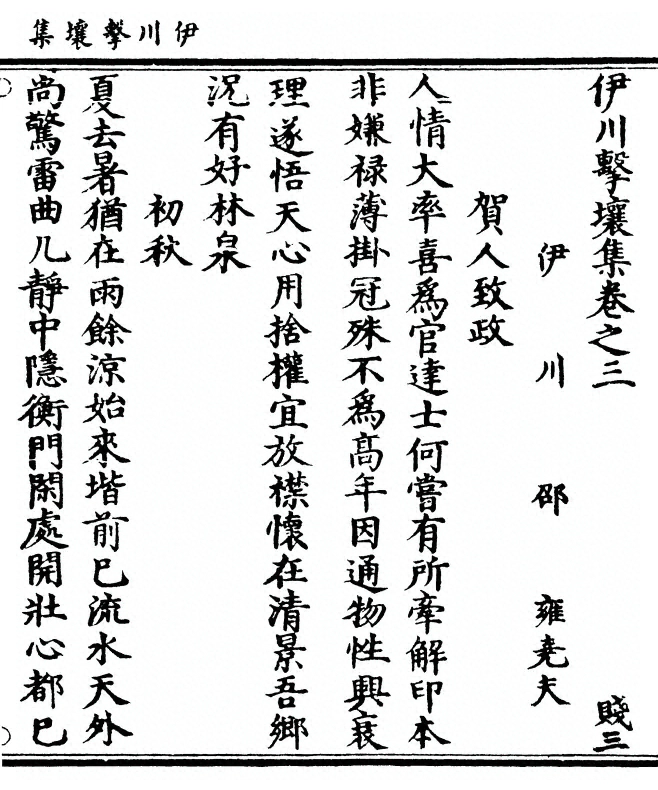 伊川擊壤集
伊川擊壤集卷之三 賤三
伊川 邵雍堯夫
賀人致政
人情大率喜爲官達士何嘗有所牽解印本
非嫌祿薄掛冠殊不爲高年因通物性興衰
理遂悟天心用捨權宜放襟懷在清景吾鄉
況有好林泉
初秋
夏去暑猶在雨餘涼始來堦前已流水天外
尚驚雷曲几靜中隱衡門閑處開壯心都已